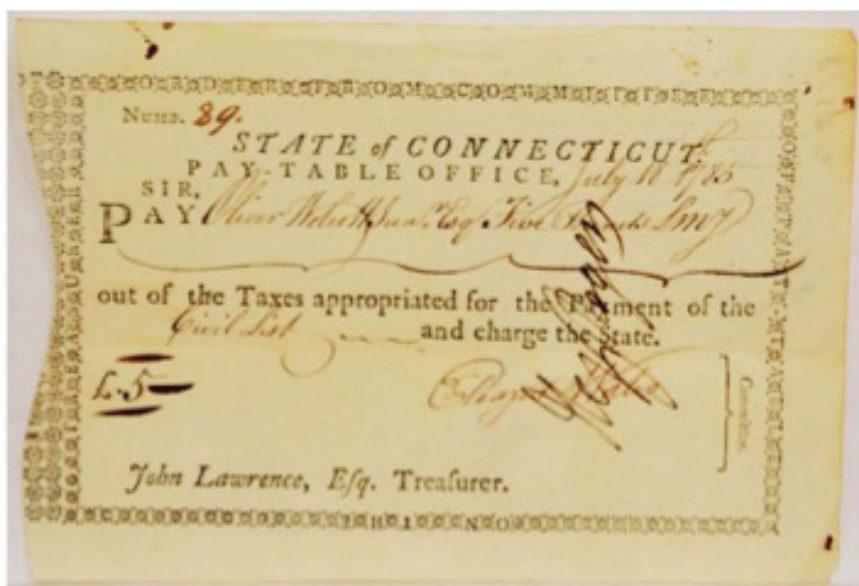 ORDER FROM COMMITTEE
NUMB. 89.
STATE of CONNECTICUT.
PAY-TABLE OFFICE, July 1785
SIR,
PAY Oliver Wolcott Junr. Esq. Five Pounds Lmy
out of the Taxes appropriated for the Payment of the
Civil List and charge the State.
£.5
Committee.
John Lawrence, Esq. Treaſurer.
ON THE